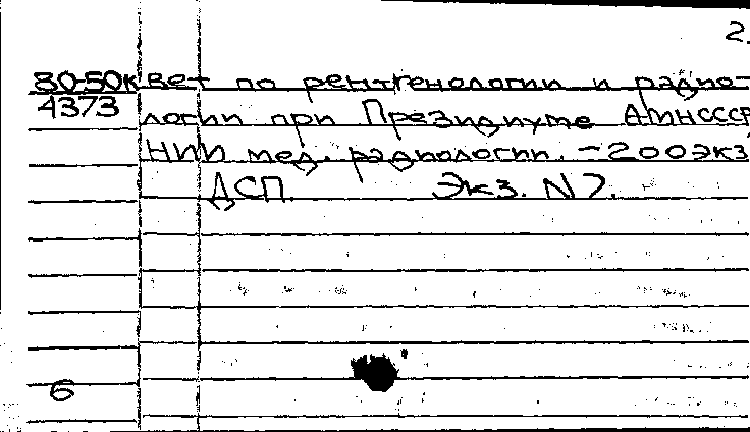 2.
80-50к вет по рентгенологии и радио-
4373 логии при Президиуме АМНСССР
НИИ мед. радиологии. -200экз
ДСП. Экз. N7.
6